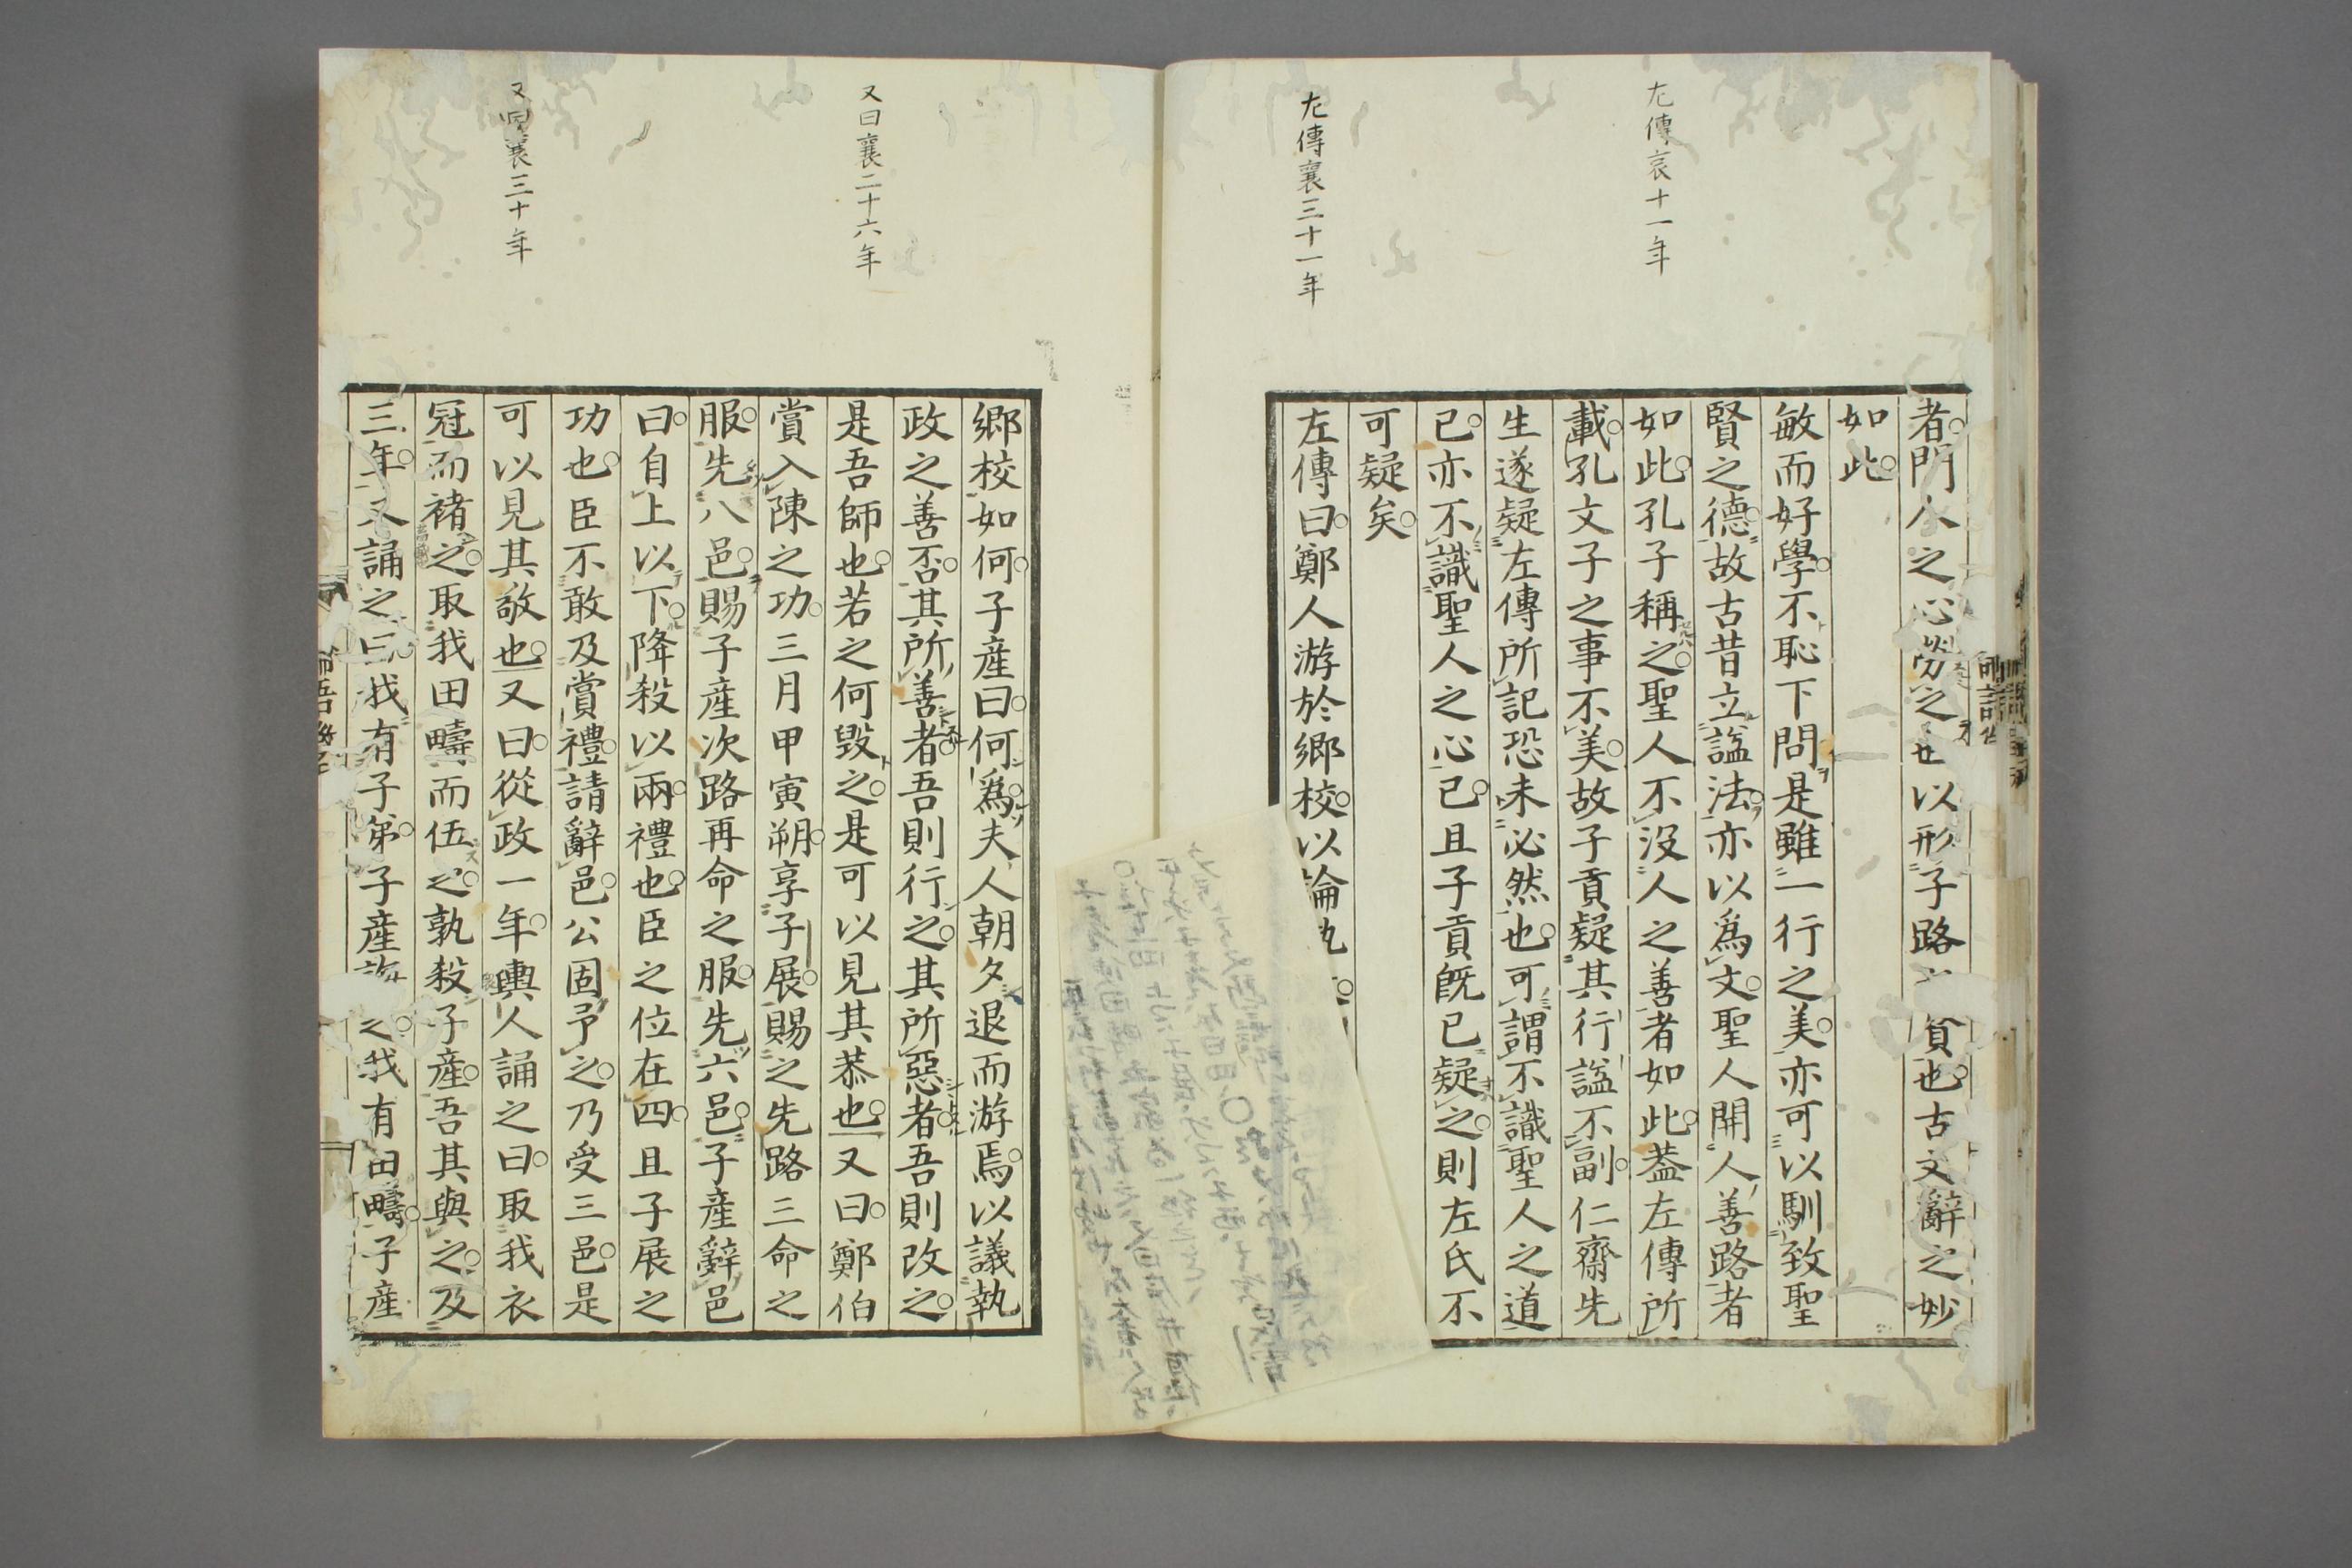 左傳哀十一年
左傳襄三十一年
者門人之心勞之也以形子路貧也古文辭之妙
如此
敏而好學不恥下問是雖一行之美亦可以馴致聖
賢之德故古昔立諡法亦以爲文聖人開人善路者
如此孔子稱之聖人不沒人之善者如此蓋左傳所
載孔文子之事不美故子貢疑其行諡不副仁齋先
生遂疑左傳所記恐未必然也可謂不識聖人之道
已亦不識聖人之心已且子貢既已疑之則左氏不
可疑矣
左傳曰鄭人游於鄉校以論執
又曰襄二十六年
又曰襄三十年
鄉校如何子產曰何爲夫人朝夕退而游焉以議執
政之善否其所善者吾則行之其所惡者吾則改之
是吾師也若之何毀之是可以見其恭也又曰鄭伯
賞入陳之功三月甲寅朔享子展賜之先路三命之
服先八邑賜子產次路再命之服先六邑子產辭邑
曰自上以下降殺以兩禮也臣之位在四且子展之
功也臣不敢及賞禮請辭邑公固予之乃受三邑是
可以見其敬也又曰從政一年輿人誦之曰取我衣
冠而褚之取我田疇而伍之孰殺子產吾其與之及
三年又誦之曰我有子弟子產誨之我有田疇子產